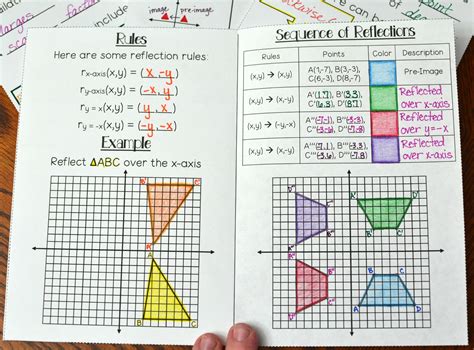 include
image
pre-image
can be
point
Rules
Here are some reflection rules:
rx-axis(x,y) = (x, -y)
ry-axis(x,y) = (-x, y)
ry = x(x,y) = (y, x)
ry = -x(x,y) = (-y, -x)
Example
Reflect ΔABC over the x-axis
B' C'
A'
A
B C
Sequence of Reflections
Rules Points Color Description
(x,y) → (x,y) A(1,-7), B(3,-3), C(6,-3), D(8,-7) Pre-Image
(x,y) → (x,-y) A'(1,7), B'(3,3), C'(6,3), D'(8,7) Reflected over x-axis
(x,y) → (-y,-x) A"(-7,-1), B"(-3,-3), C"(-3,-6), D"(-7,-8) Reflected over y=-x
(x,y) → (x,-y) A'''(-7,1), B'''(-3,3), C'''(-3,6), D'''(-7,8) Reflected over x-axis